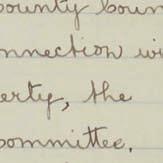 county coun
nnection wi
erty, the
committee.